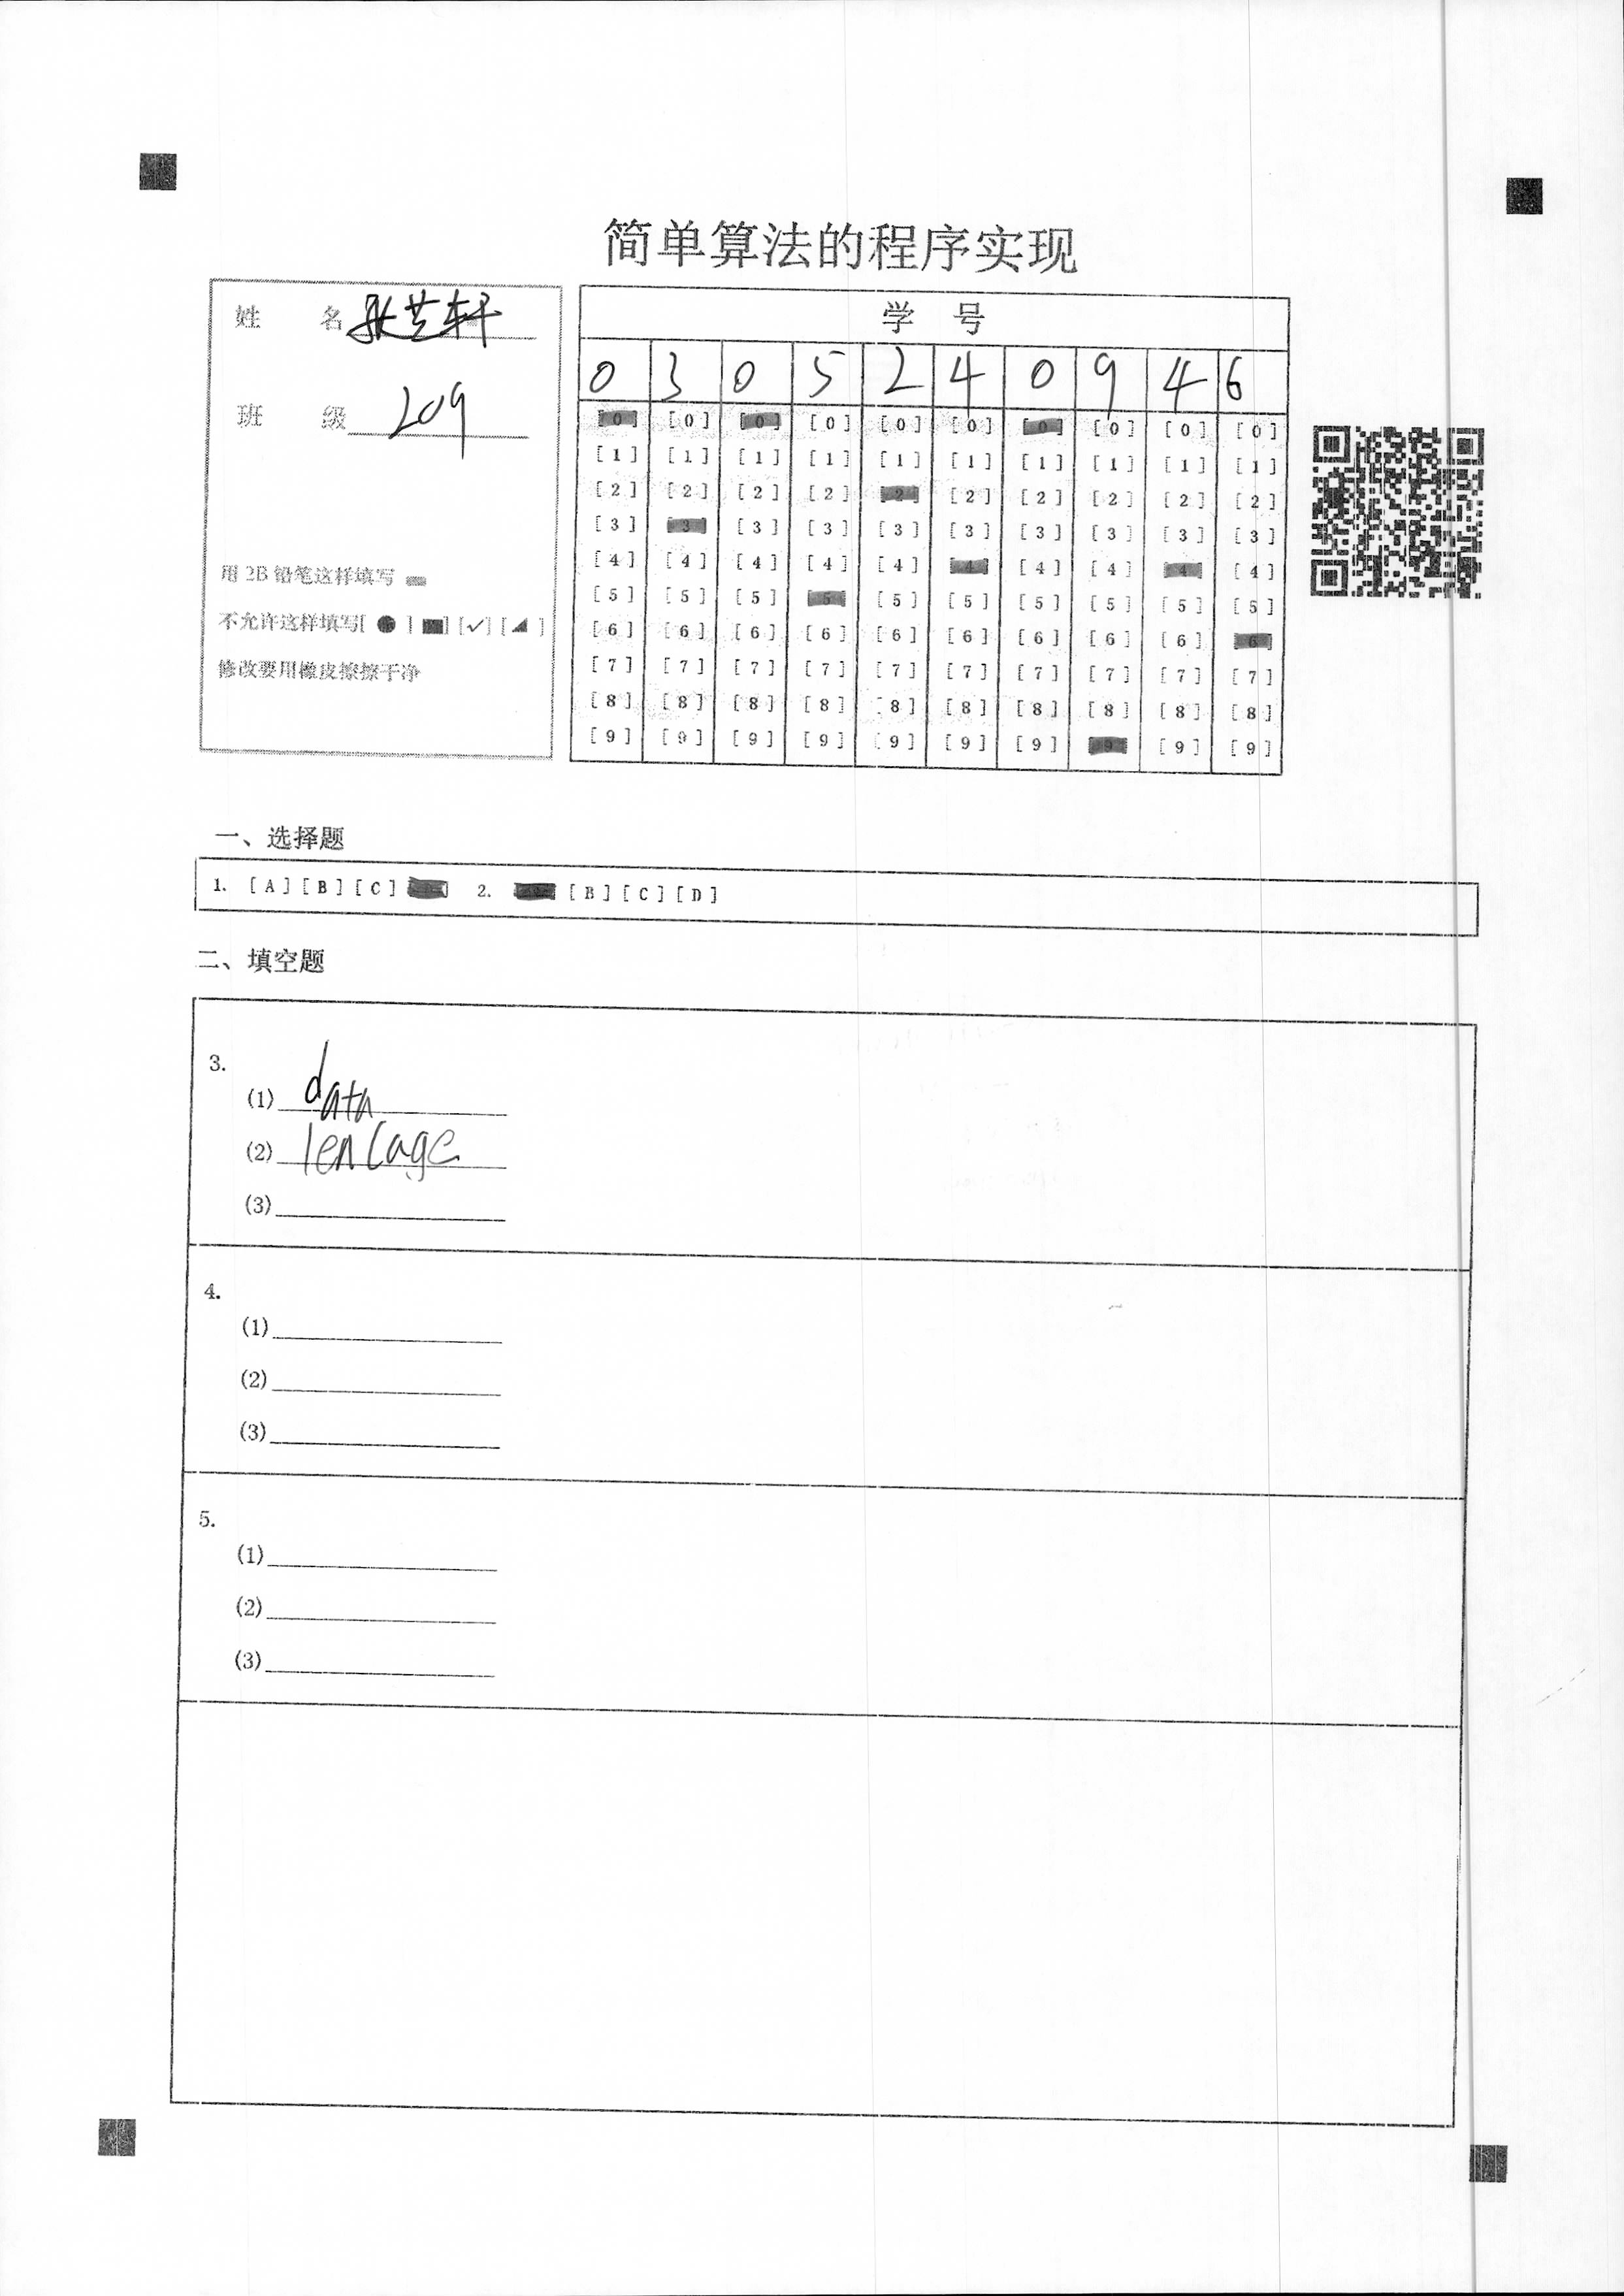 简单算法的程序实现
姓 名 张芝轩
班 级 209
用 2B 铅笔这样填写
不允许这样填写[ ● ] [■] [✓] [◢ ]
修改要用橡皮擦擦干净
学 号
0 3 0 5 2 4 0 9 4 6
[0] [0] [0] [0] [0] [0] [0] [0] [0] [0]
[1] [1] [1] [1] [1] [1] [1] [1] [1] [1]
[2] [2] [2] [2] [2] [2] [2] [2] [2] [2]
[3] [3] [3] [3] [3] [3] [3] [3] [3] [3]
[4] [4] [4] [4] [4] [4] [4] [4] [4] [4]
[5] [5] [5] [5] [5] [5] [5] [5] [5] [5]
[6] [6] [6] [6] [6] [6] [6] [6] [6] [6]
[7] [7] [7] [7] [7] [7] [7] [7] [7] [7]
[8] [8] [8] [8] [8] [8] [8] [8] [8] [8]
[9] [9] [9] [9] [9] [9] [9] [9] [9] [9]
一、选择题
1. [A] [B] [C] 2. [B] [C] [D]
二、填空题
3.
(1) data
(2) len(age
(3)
4.
(1)
(2)
(3)
5.
(1)
(2)
(3)